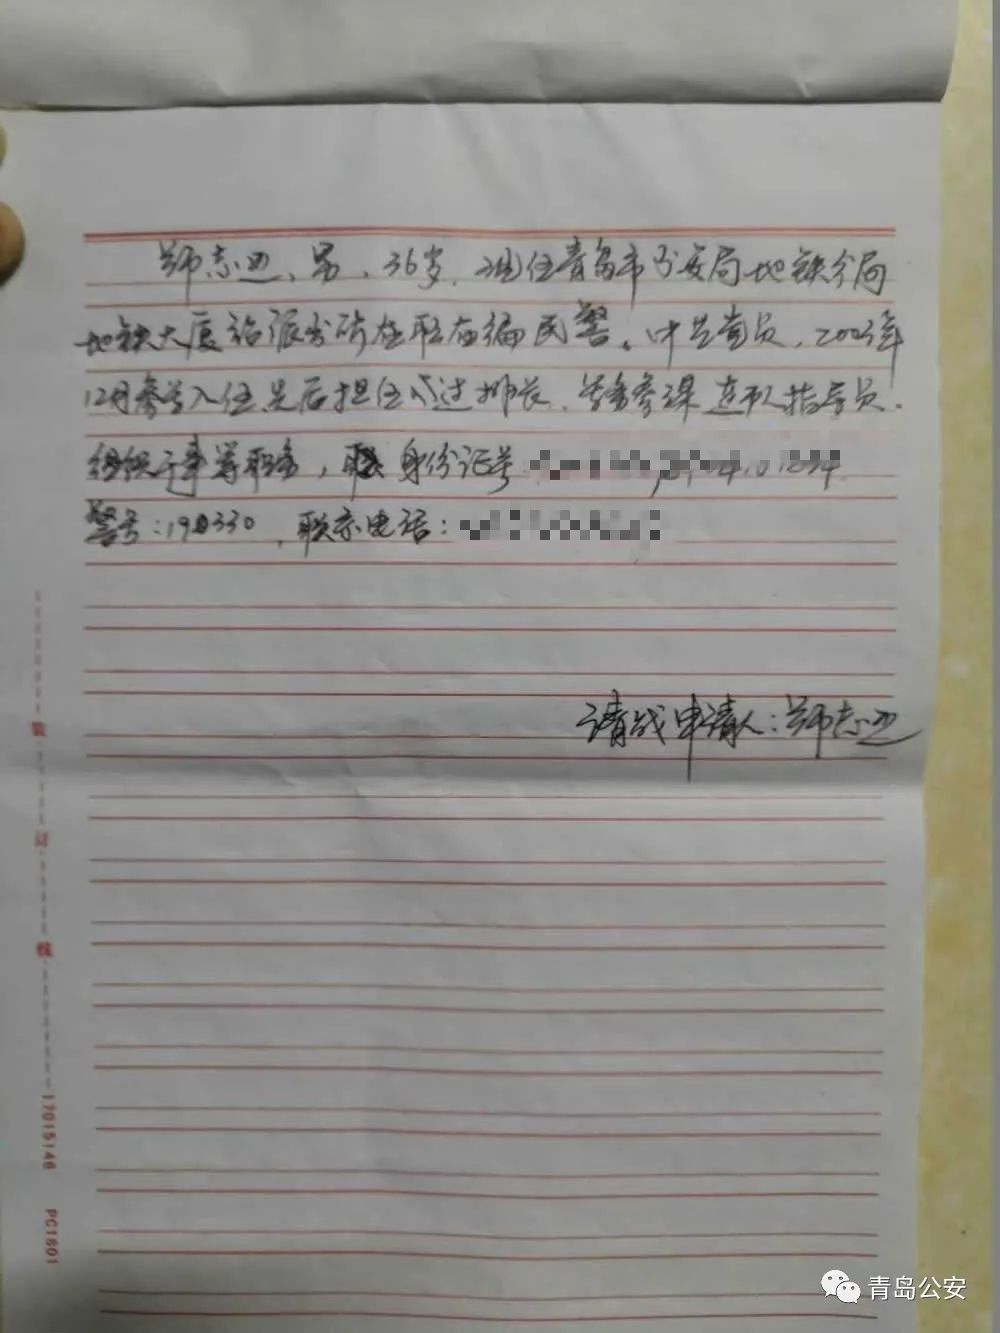 郑志迅、男、36岁、现任青岛市公安局地铁分局
地铁大厦站派出所在职在编民警。中共党员,
12月参军入伍先后担任过排长、参谋 连队指导员、
组织干事等职务, 身份证号
警号:190330,联系电话:
请战申请人:郑志迅
装
订
线
17015146 PC1801
青岛公安